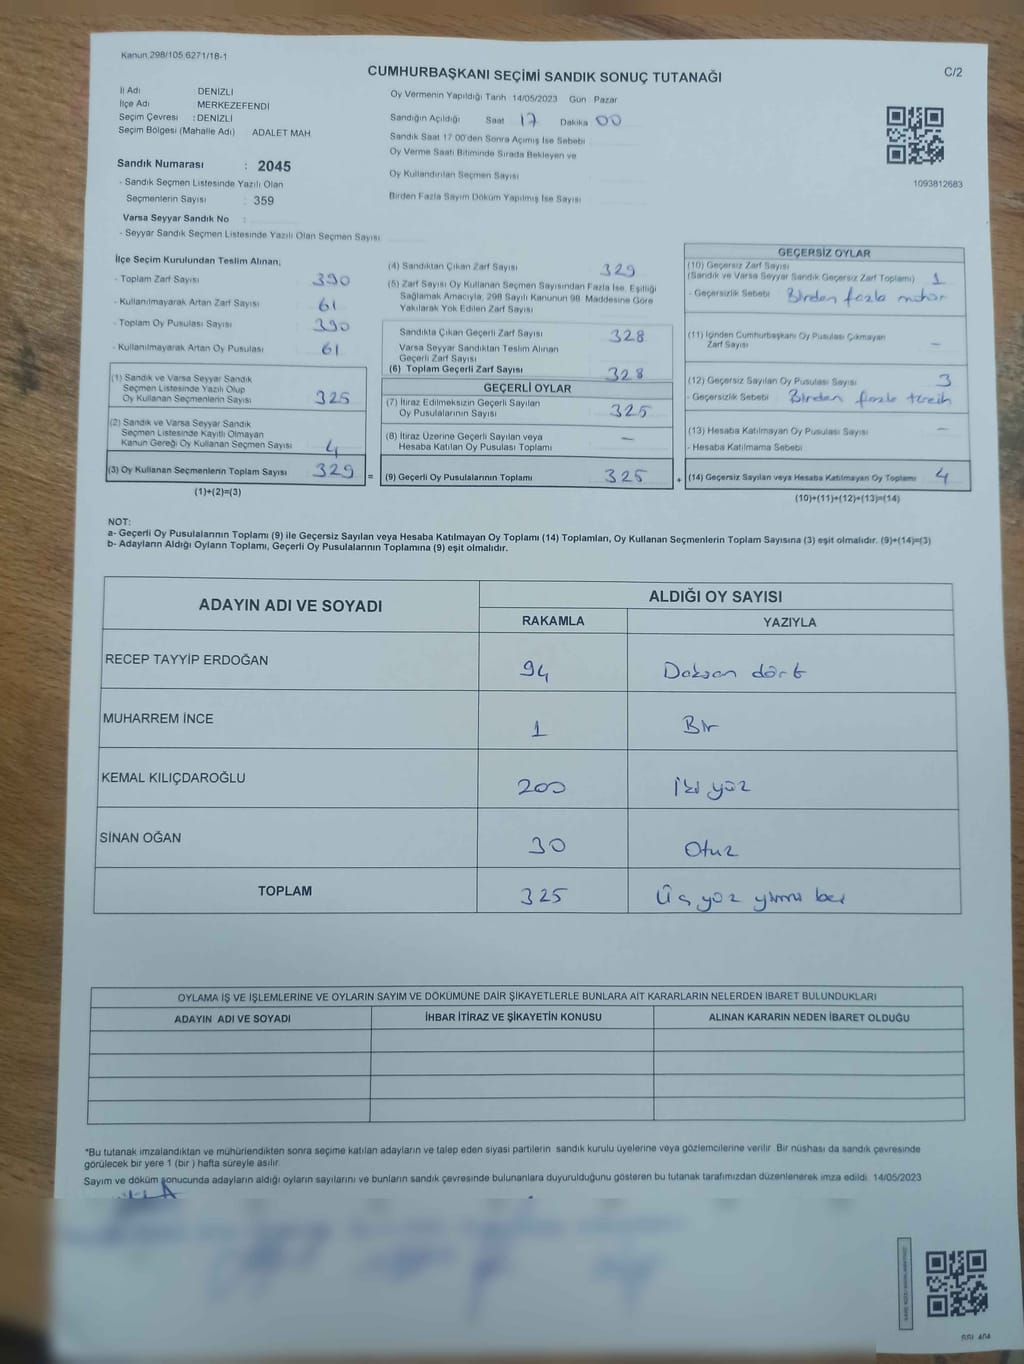 Kanun 298/105,6271/18-1
CUMHURBAŞKANI SEÇİMİ SANDIK SONUÇ TUTANAĞI
C/2
İl Adı DENİZLİ
İlçe Adı MERKEZEFENDİ
Seçim Çevresi : DENİZLİ
Seçim Bölgesi (Mahalle Adı) ADALET MAH
Sandık Numarası : 2045
- Sandık Seçmen Listesinde Yazılı Olan
Seçmenlerin Sayısı : 359
Varsa Seyyar Sandık No :
- Seyyar Sandık Seçmen Listesinde Yazılı Olan Seçmen Sayısı
Oy Vermenin Yapıldığı Tarih 14/05/2023 Gün Pazar
Sandığın Açıldığı Saat 17 Dakika 00
Sandık Saat 17.00'den Sonra Açımış İse Sebebi
Oy Verme Saati Bitiminde Sırada Bekleyen ve
Oy Kullandırılan Seçmen Sayısı
Birden Fazla Sayım Döküm Yapılmış İse Sayısı
1093812683
İlçe Seçim Kurulundan Teslim Alınan;
- Toplam Zarf Sayısı 390
- Kullanılmayarak Artan Zarf Sayısı 61
- Toplam Oy Pusulası Sayısı 390
- Kullanılmayarak Artan Oy Pusulası 61
(1) Sandık ve Varsa Seyyar Sandık
Seçmen Listesinde Yazılı Olup
Oy Kullanan Seçmenlerin Sayısı 325
(2) Sandık ve Varsa Seyyar Sandık
Seçmen Listesinde Kayıtlı Olmayan
Kanun Gereği Oy Kullanan Seçmen Sayısı 4
(3) Oy Kullanan Seçmenlerin Toplam Sayısı 329 =
(1)+(2)=(3)
(4) Sandıktan Çıkan Zarf Sayısı 329
(5) Zarf Sayısı Oy Kullanan Seçmen Sayısından Fazla İse, Eşitliği
Sağlamak Amacıyla, 298 Sayılı Kanunun 98. Maddesine Göre
Yakılarak Yok Edilen Zarf Sayısı
Sandıkta Çıkan Geçerli Zarf Sayısı 328
Varsa Seyyar Sandıktan Teslim Alınan
Geçerli Zarf Sayısı
(6) Toplam Geçerli Zarf Sayısı 328
GEÇERLİ OYLAR
(7) İtiraz Edilmeksizin Geçerli Sayılan
Oy Pusulalarının Sayısı 325
(8) İtiraz Üzerine Geçerli Sayılan veya
Hesaba Katılan Oy Pusulası Toplamı —
(9) Geçerli Oy Pusulalarının Toplamı 325 +
GEÇERSİZ OYLAR
(10) Geçersiz Zarf Sayısı
(Sandık ve Varsa Seyyar Sandık Geçersiz Zarf Toplamı) 1
- Geçersizlik Sebebi Birden fazla mühür
(11) İçinden Cumhurbaşkanı Oy Pusulası Çıkmayan
Zarf Sayısı —
(12) Geçersiz Sayılan Oy Pusulası Sayısı 3
- Geçersizlik Sebebi Birden fazla tercih
(13) Hesaba Katılmayan Oy Pusulası Sayısı —
- Hesaba Katılmama Sebebi
(14) Geçersiz Sayılan veya Hesaba Katılmayan Oy Toplamı 4
(10)+(11)+(12)+(13)=(14)
NOT:
a- Geçerli Oy Pusulalarının Toplamı (9) ile Geçersiz Sayılan veya Hesaba Katılmayan Oy Toplamı (14) Toplamları, Oy Kullanan Seçmenlerin Toplam Sayısına (3) eşit olmalıdır. (9)+(14)=(3)
b- Adayların Aldığı Oyların Toplamı, Geçerli Oy Pusulalarının Toplamına (9) eşit olmalıdır.
ADAYIN ADI VE SOYADI ALDIĞI OY SAYISI
RAKAMLA YAZIYLA
RECEP TAYYİP ERDOĞAN 94 Doksan dört
MUHARREM İNCE 1 Bir
KEMAL KILIÇDAROĞLU 200 İki yüz
SİNAN OĞAN 30 Otuz
TOPLAM 325 Üç yüz yirmi beş
OYLAMA İŞ VE İŞLEMLERİNE VE OYLARIN SAYIM VE DÖKÜMÜNE DAİR ŞİKAYETLERLE BUNLARA AİT KARARLARIN NELERDEN İBARET BULUNDUKLARI
ADAYIN ADI VE SOYADI İHBAR İTİRAZ VE ŞİKAYETİN KONUSU ALINAN KARARIN NEDEN İBARET OLDUĞU
*Bu tutanak imzalandıktan ve mühürlendikten sonra seçime katılan adayların ve talep eden siyasi partilerin sandık kurulu üyelerine veya gözlemcilerine verilir. Bir nüshası da sandık çevresinde
görülecek bir yere 1 (bir ) hafta süreyle asılır.
Sayım ve döküm sonucunda adayların aldığı oyların sayılarını ve bunların sandık çevresinde bulunanlara duyurulduğunu gösteren bu tutanak tarafımızdan düzenlenerek imza edildi. 14/05/2023